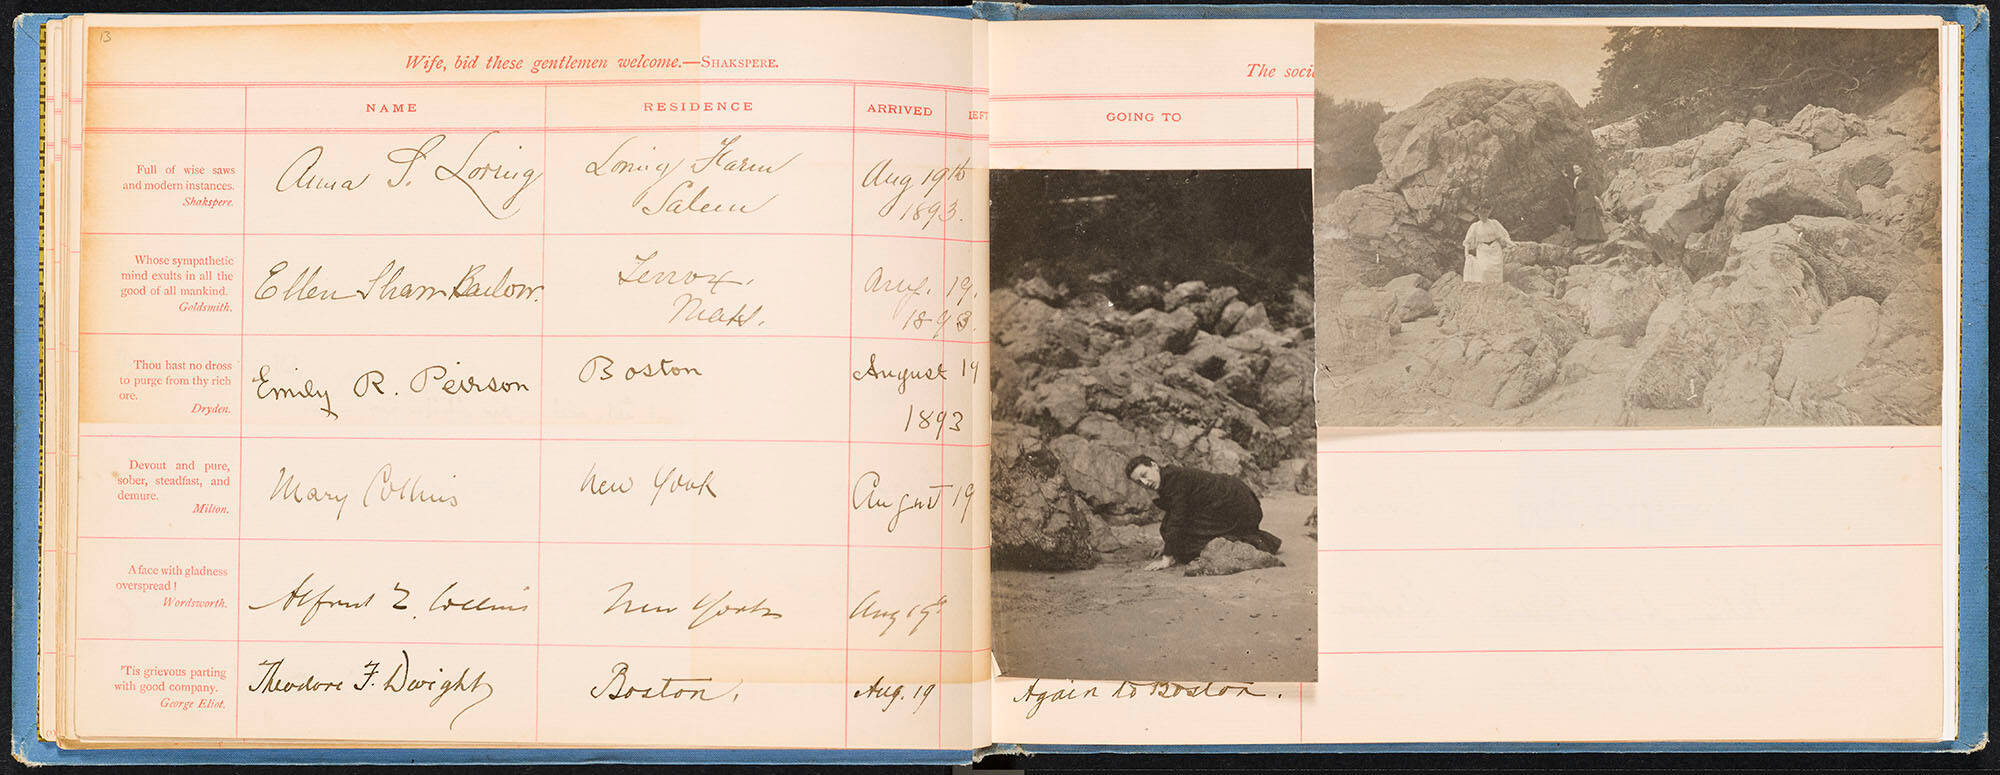 13
Wife, bid these gentlemen welcome.—SHAKSPERE.
NAME
RESIDENCE
ARRIVED
LEFT
Full of wise saws
and modern instances.
Shakspere.
Anna S. Loring
Loring Farm
Salem
Aug 19th
1893.
Whose sympathetic
mind exults in all the
good of all mankind.
Goldsmith.
Ellen Sham Barlow.
Lenox.
Mass.
Aug. 19.
1893.
Thou hast no dross
to purge from thy rich
ore.
Dryden.
Emily R. Peirson
Boston
August 19
1893
Devout and pure,
sober, steadfast, and
demure.
Milton.
Mary Collins
New York
August 19
A face with gladness
overspread!
Wordsworth.
Alfred Collins
New York
Aug 19th
'Tis grievous parting
with good company.
George Eliot.
Theodore F. Dwight
Boston.
Aug. 19
The soci
GOING TO
Again to Boston.